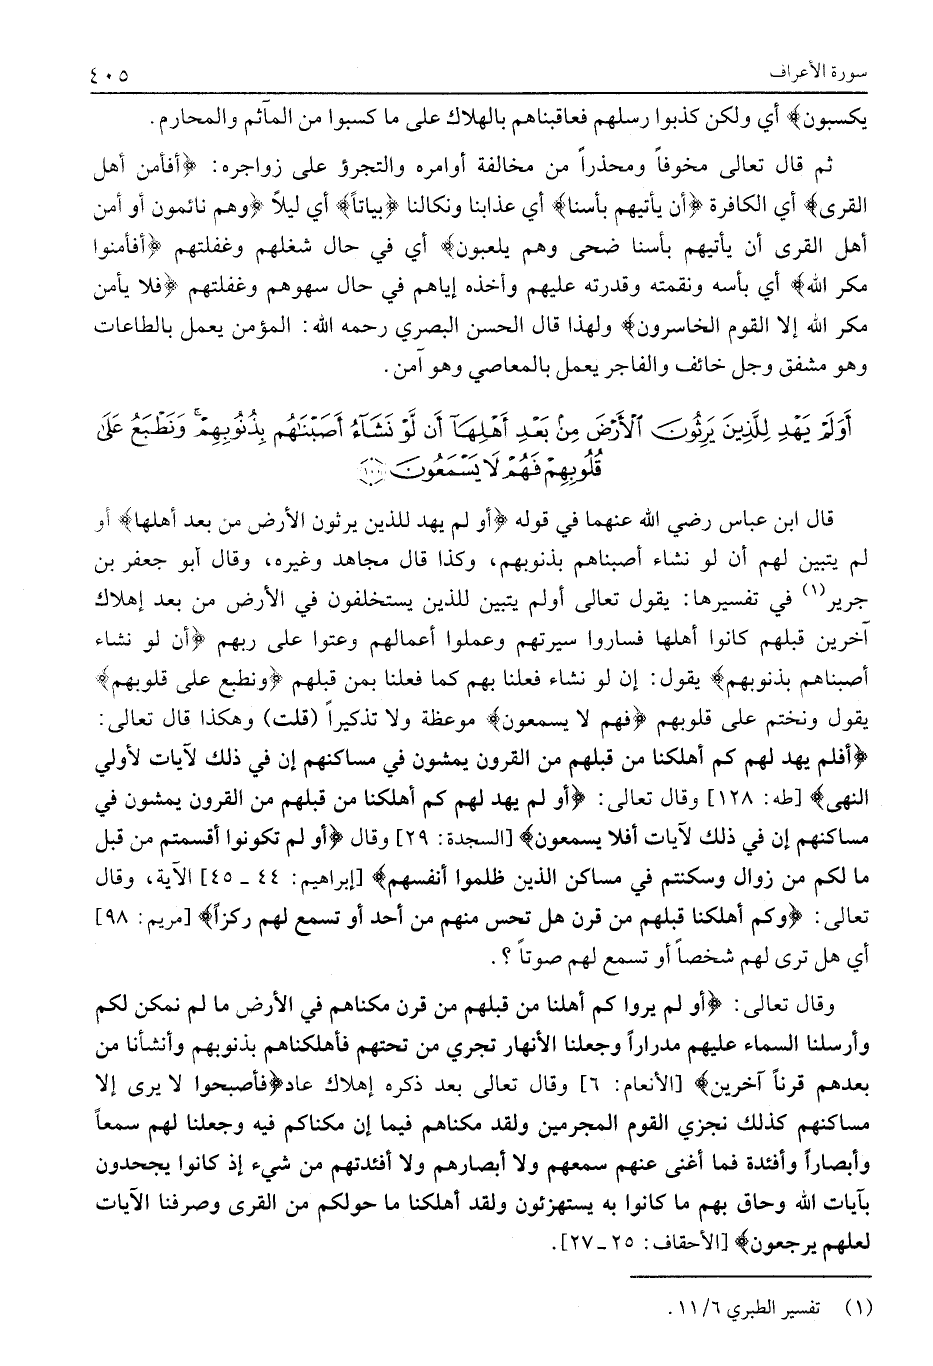 سورة الأعراف ٤٠٥
يكسبون﴾ أي ولكن كذبوا رسلهم فعاقبناهم بالهلاك على ما كسبوا من المآثم والمحارم.
ثم قال تعالى مخوفاً ومحذراً من مخالفة أوامره والتجرؤ على زواجره: ﴿أفأمن أهل
القرى﴾ أي الكافرة ﴿أن يأتيهم بأسنا﴾ أي عذابنا ونكالنا ﴿بياتاً﴾ أي ليلاً ﴿وهم نائمون أو أمن
أهل القرى أن يأتيهم بأسنا ضحى وهم يلعبون﴾ أي في حال شغلهم وغفلتهم ﴿أفأمنوا
مكر الله﴾ أي بأسه ونقمته وقدرته عليهم وأخذه إياهم في حال سهوهم وغفلتهم ﴿فلا يأمن
مكر الله إلا القوم الخاسرون﴾ ولهذا قال الحسن البصري رحمه الله: المؤمن يعمل بالطاعات
وهو مشفق وجل خائف والفاجر يعمل بالمعاصي وهو آمن.
أَوَلَمْ يَهْدِ لِلَّذِينَ يَرِثُونَ ٱلْأَرْضَ مِنۢ بَعْدِ أَهْلِهَآ أَن لَّوْ نَشَآءُ أَصَبْنَٰهُم بِذُنُوبِهِمْ ۚ وَنَطْبَعُ عَلَىٰ
قُلُوبِهِمْ فَهُمْ لَا يَسْمَعُونَ ﴿١٠٠﴾
قال ابن عباس رضي الله عنهما في قوله ﴿أو لم يهد للذين يرثون الأرض من بعد أهلها﴾ أو
لم يتبين لهم أن لو نشاء أصبناهم بذنوبهم، وكذا قال مجاهد وغيره، وقال أبو جعفر بن
جرير(١) في تفسيرها: يقول تعالى أولم يتبين للذين يستخلفون في الأرض من بعد إهلاك
آخرين قبلهم كانوا أهلها فساروا سيرتهم وعملوا أعمالهم وعتوا على ربهم ﴿أن لو نشاء
أصبناهم بذنوبهم﴾ يقول: إن لو نشاء فعلنا بهم كما فعلنا بمن قبلهم ﴿ونطبع على قلوبهم﴾
يقول ونختم على قلوبهم ﴿فهم لا يسمعون﴾ موعظة ولا تذكيراً (قلت) وهكذا قال تعالى:
﴿أفلم يهد لهم كم أهلكنا من قبلهم من القرون يمشون في مساكنهم إن في ذلك لآيات لأولي
النهى﴾ [طه: ١٢٨] وقال تعالى: ﴿أو لم يهد لهم كم أهلكنا من قبلهم من القرون يمشون في
مساكنهم إن في ذلك لآيات أفلا يسمعون﴾ [السجدة: ٢٩] وقال ﴿أو لم تكونوا أقسمتم من قبل
ما لكم من زوال وسكنتم في مساكن الذين ظلموا أنفسهم﴾ [إبراهيم: ٤٤ - ٤٥] الآية، وقال
تعالى: ﴿وكم أهلكنا قبلهم من قرن هل تحس منهم من أحد أو تسمع لهم ركزاً﴾ [مريم: ٩٨]
أي هل ترى لهم شخصاً أو تسمع لهم صوتاً ؟.
وقال تعالى: ﴿أو لم يروا كم أهلنا من قبلهم من قرن مكناهم في الأرض ما لم نمكن لكم
وأرسلنا السماء عليهم مدراراً وجعلنا الأنهار تجري من تحتهم فأهلكناهم بذنوبهم وأنشأنا من
بعدهم قرناً آخرين﴾ [الأنعام: ٦] وقال تعالى بعد ذكره إهلاك عاد﴿فأصبحوا لا يرى إلا
مساكنهم كذلك نجزي القوم المجرمين ولقد مكناهم فيما إن مكناكم فيه وجعلنا لهم سمعاً
وأبصاراً وأفئدة فما أغنى عنهم سمعهم ولا أبصارهم ولا أفئدتهم من شيء إذ كانوا يجحدون
بآيات الله وحاق بهم ما كانوا به يستهزئون ولقد أهلكنا ما حولكم من القرى وصرفنا الآيات
لعلهم يرجعون﴾ [الأحقاف: ٢٥ - ٢٧].
(١) تفسير الطبري ١١/٦.